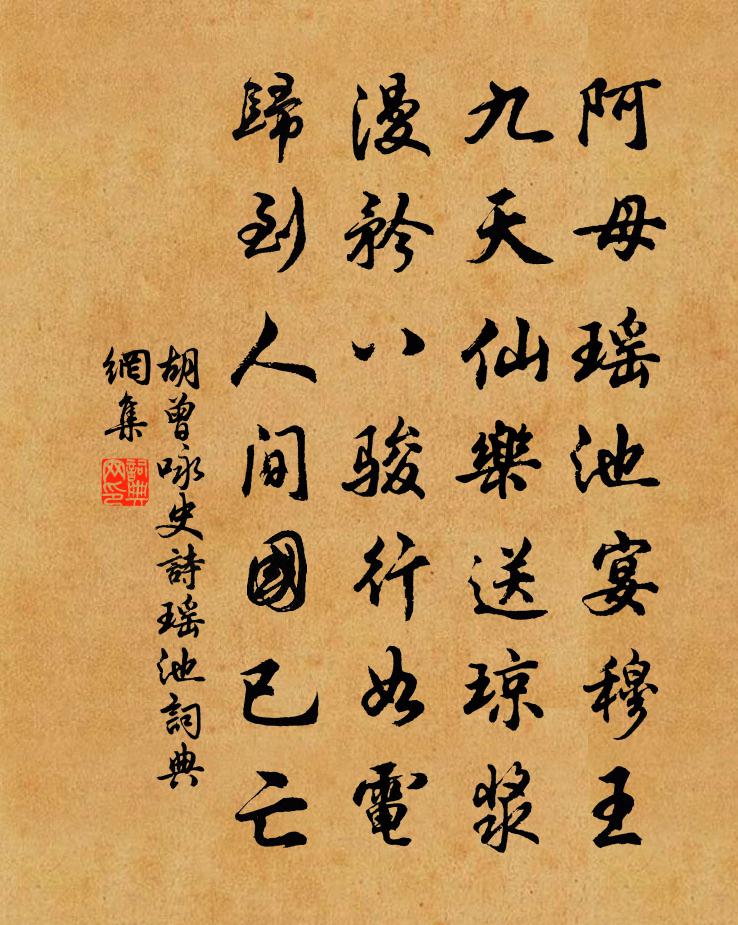 阿母瑶池宴穆王
九天仙樂送琼漿
漫矜八駿行如電
歸到人间國已亡
胡曾咏史詩瑶池詞典
網集
詞典
网印